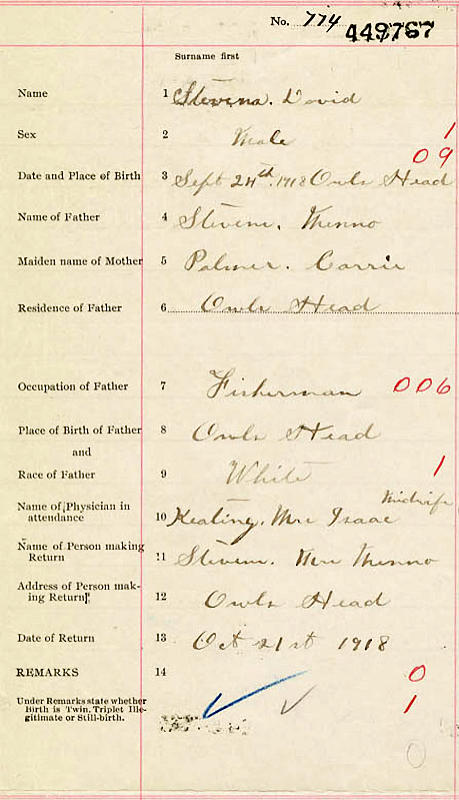 No. 774 449767
Surname first
Name 1 Stevens. David
Sex 2 Male 1
09
Date and Place of Birth 3 Sept 24th 1918 Owls Head
Name of Father 4 Stevens, Menno
Maiden name of Mother 5 Palmer. Carrie
Residence of Father 6 Owls Head
Occupation of Father 7 Fisherman 006
Place of Birth of Father 8 Owls Head
and
Race of Father 9 White 1
Name of Physician in Midwife
attendance 10 Keating, Mrs Isaac
Name of Person making
Return 11 Stevens. Mrs Menno
Address of Person mak-
ing Return 12 Owls Head
Date of Return 13 Oct 21st 1918
REMARKS 14 0
Under Remarks state whether
Birth is Twin, Triplet Ille- 1
gitimate or Still-birth.
0